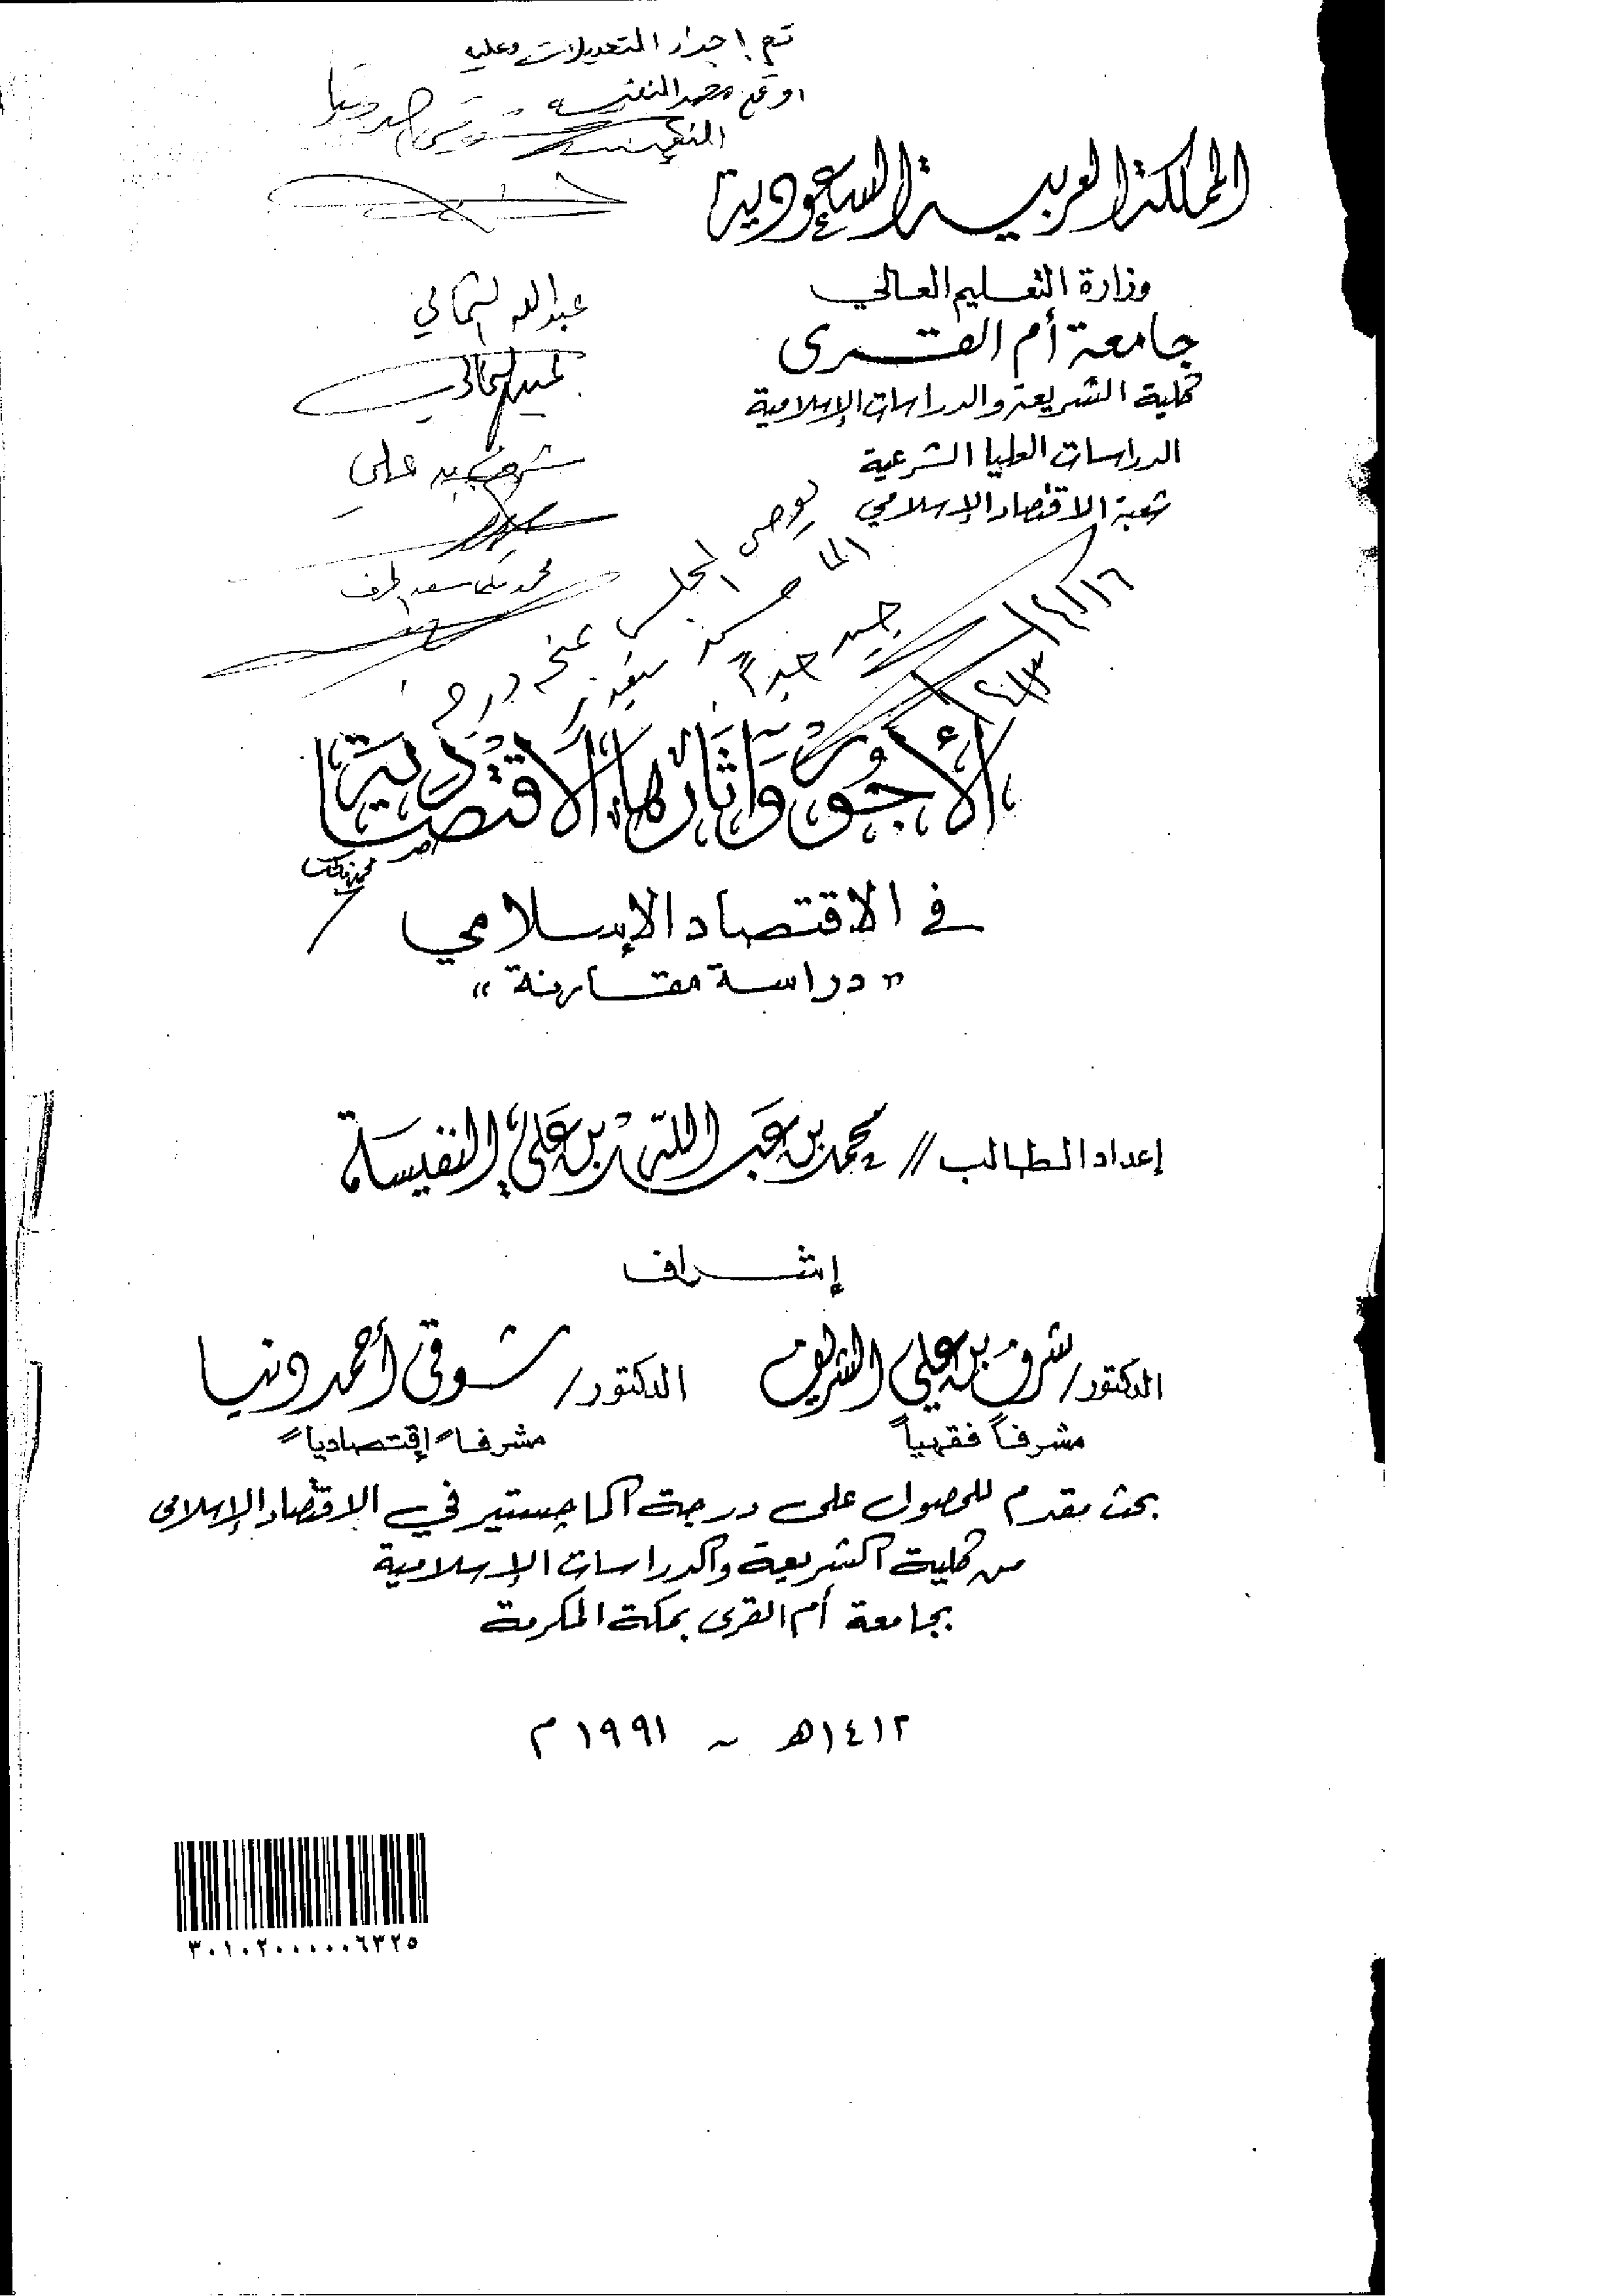 تم إجراء التعديلات وعليه
اوقع
المملكة العربية السعودية
وزارة التعليم العالي
جامعة أم القرى
كلية الشريعة والدراسات الإسلامية
الدراسات العليا الشرعية
شعبة الاقتصاد الإسلامي
عبدالله الثمالي
شرف بن علي
يوصي المجلس بمنح درجة
الماجستير بتقدير
جيد جداً
الأجور وآثارها الاقتصادية
في الاقتصاد الإسلامي
"دراسة مقارنة"
إعداد الطالب // محمد بن عبد الله بن علي النفيسة
إشراف
الدكتور/ شرف بن علي الشريف الدكتور/ شوقي أحمد دنيا
مشرفاً فقهياً مشرفاً إقتصادياً
بحث مقدم للحصول على درجة الماجستير في الاقتصاد الإسلامي
من كلية الشريعة والدراسات الإسلامية
بجامعة أم القرى بمكة المكرمة
١٤١٢هـ - ١٩٩١م
٣٠١٠٢٠٠٠٠٠٦٣٢٥